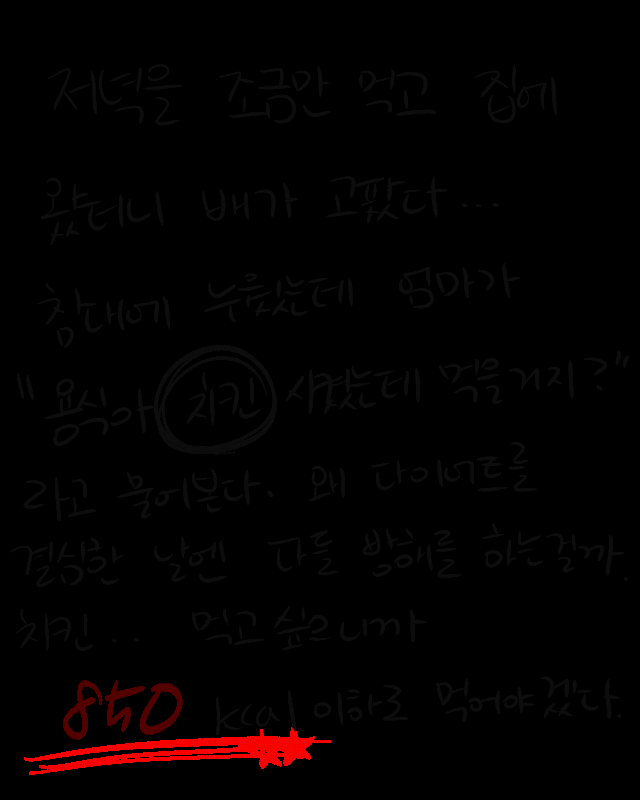 저녁을 조금만 먹고 집에
왔더니 배가 고팠다...
침대에 누웠는데 엄마가
"용식아 치킨 시켰는데 먹을거지?"
라고 물어본다. 왜 다이어트를
결심한 날엔 다들 방해를 하는걸까.
치킨... 먹고싶으니까
850 kcal 이하로 먹어야겠다.